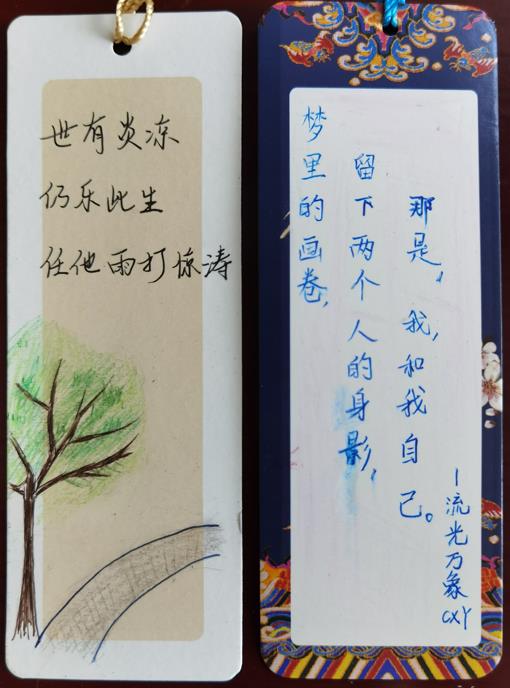 世有炎凉
仍乐此生
任他雨打惊涛
梦里的画卷,
留下两个人的身影,
那是,我,和我自己。
—流光万象
cxy